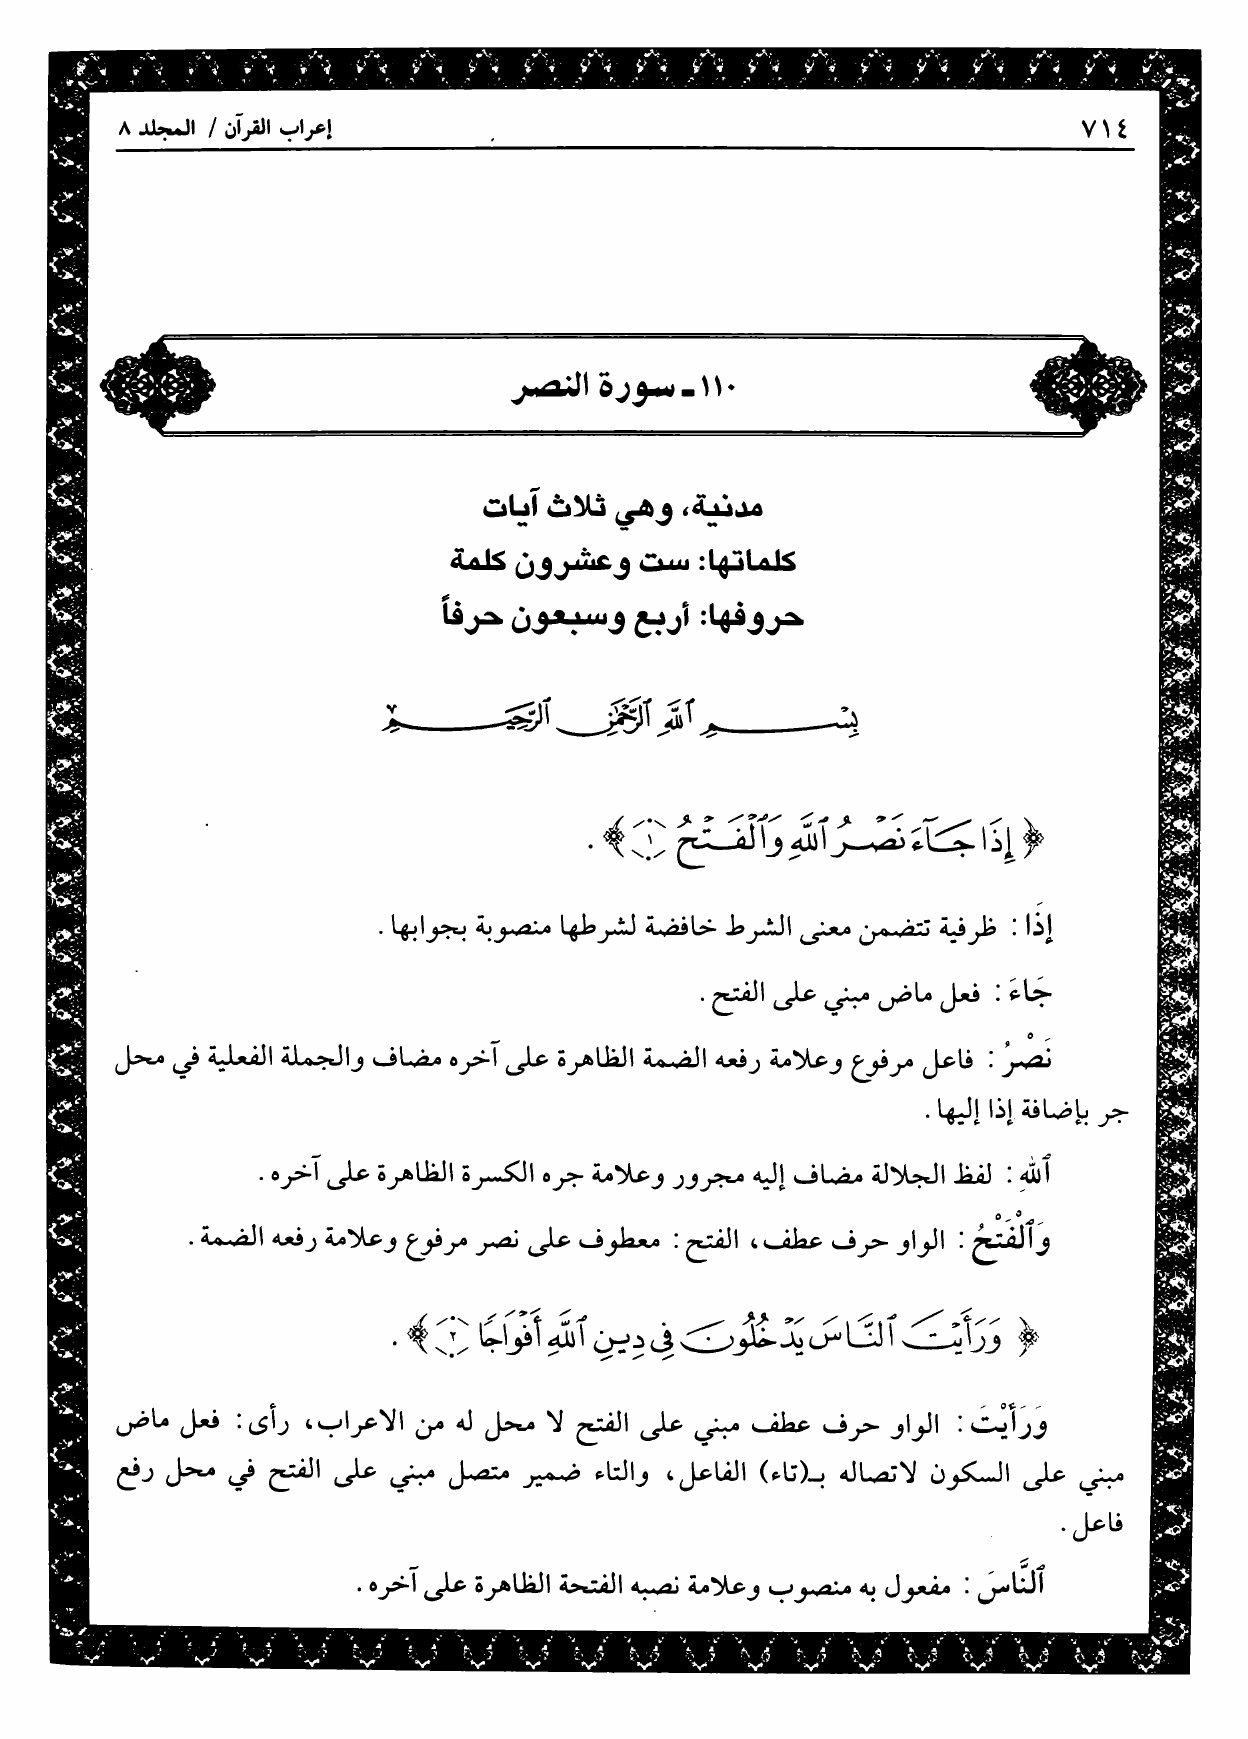 ٧١٤ إعراب القرآن / المجلد ٨
١١٠ ـ سورة النصر
مدنية، وهي ثلاث آيات
كلماتها: ست وعشرون كلمة
حروفها: أربع وسبعون حرفاً
بِسْمِ ٱللَّهِ ٱلرَّحْمَٰنِ ٱلرَّحِيمِ
﴿ إِذَا جَآءَ نَصْرُ ٱللَّهِ وَٱلْفَتْحُ ١ ﴾ .
إِذَا : ظرفية تتضمن معنى الشرط خافضة لشرطها منصوبة بجوابها .
جَاءَ : فعل ماض مبني على الفتح .
نَصْرُ : فاعل مرفوع وعلامة رفعه الضمة الظاهرة على آخره مضاف والجملة الفعلية في محل
جر بإضافة إذا إليها .
ٱللهِ : لفظ الجلالة مضاف إليه مجرور وعلامة جره الكسرة الظاهرة على آخره .
وَٱلْفَتْحُ : الواو حرف عطف، الفتح : معطوف على نصر مرفوع وعلامة رفعه الضمة .
﴿ وَرَأَيْتَ ٱلنَّاسَ يَدْخُلُونَ فِي دِينِ ٱللَّهِ أَفْوَاجًا ٢ ﴾ .
وَرَأَيْتَ : الواو حرف عطف مبني على الفتح لا محل له من الاعراب، رأى : فعل ماض
مبني على السكون لاتصاله بـ(تاء) الفاعل، والتاء ضمير متصل مبني على الفتح في محل رفع
فاعل .
ٱلنَّاسَ : مفعول به منصوب وعلامة نصبه الفتحة الظاهرة على آخره .